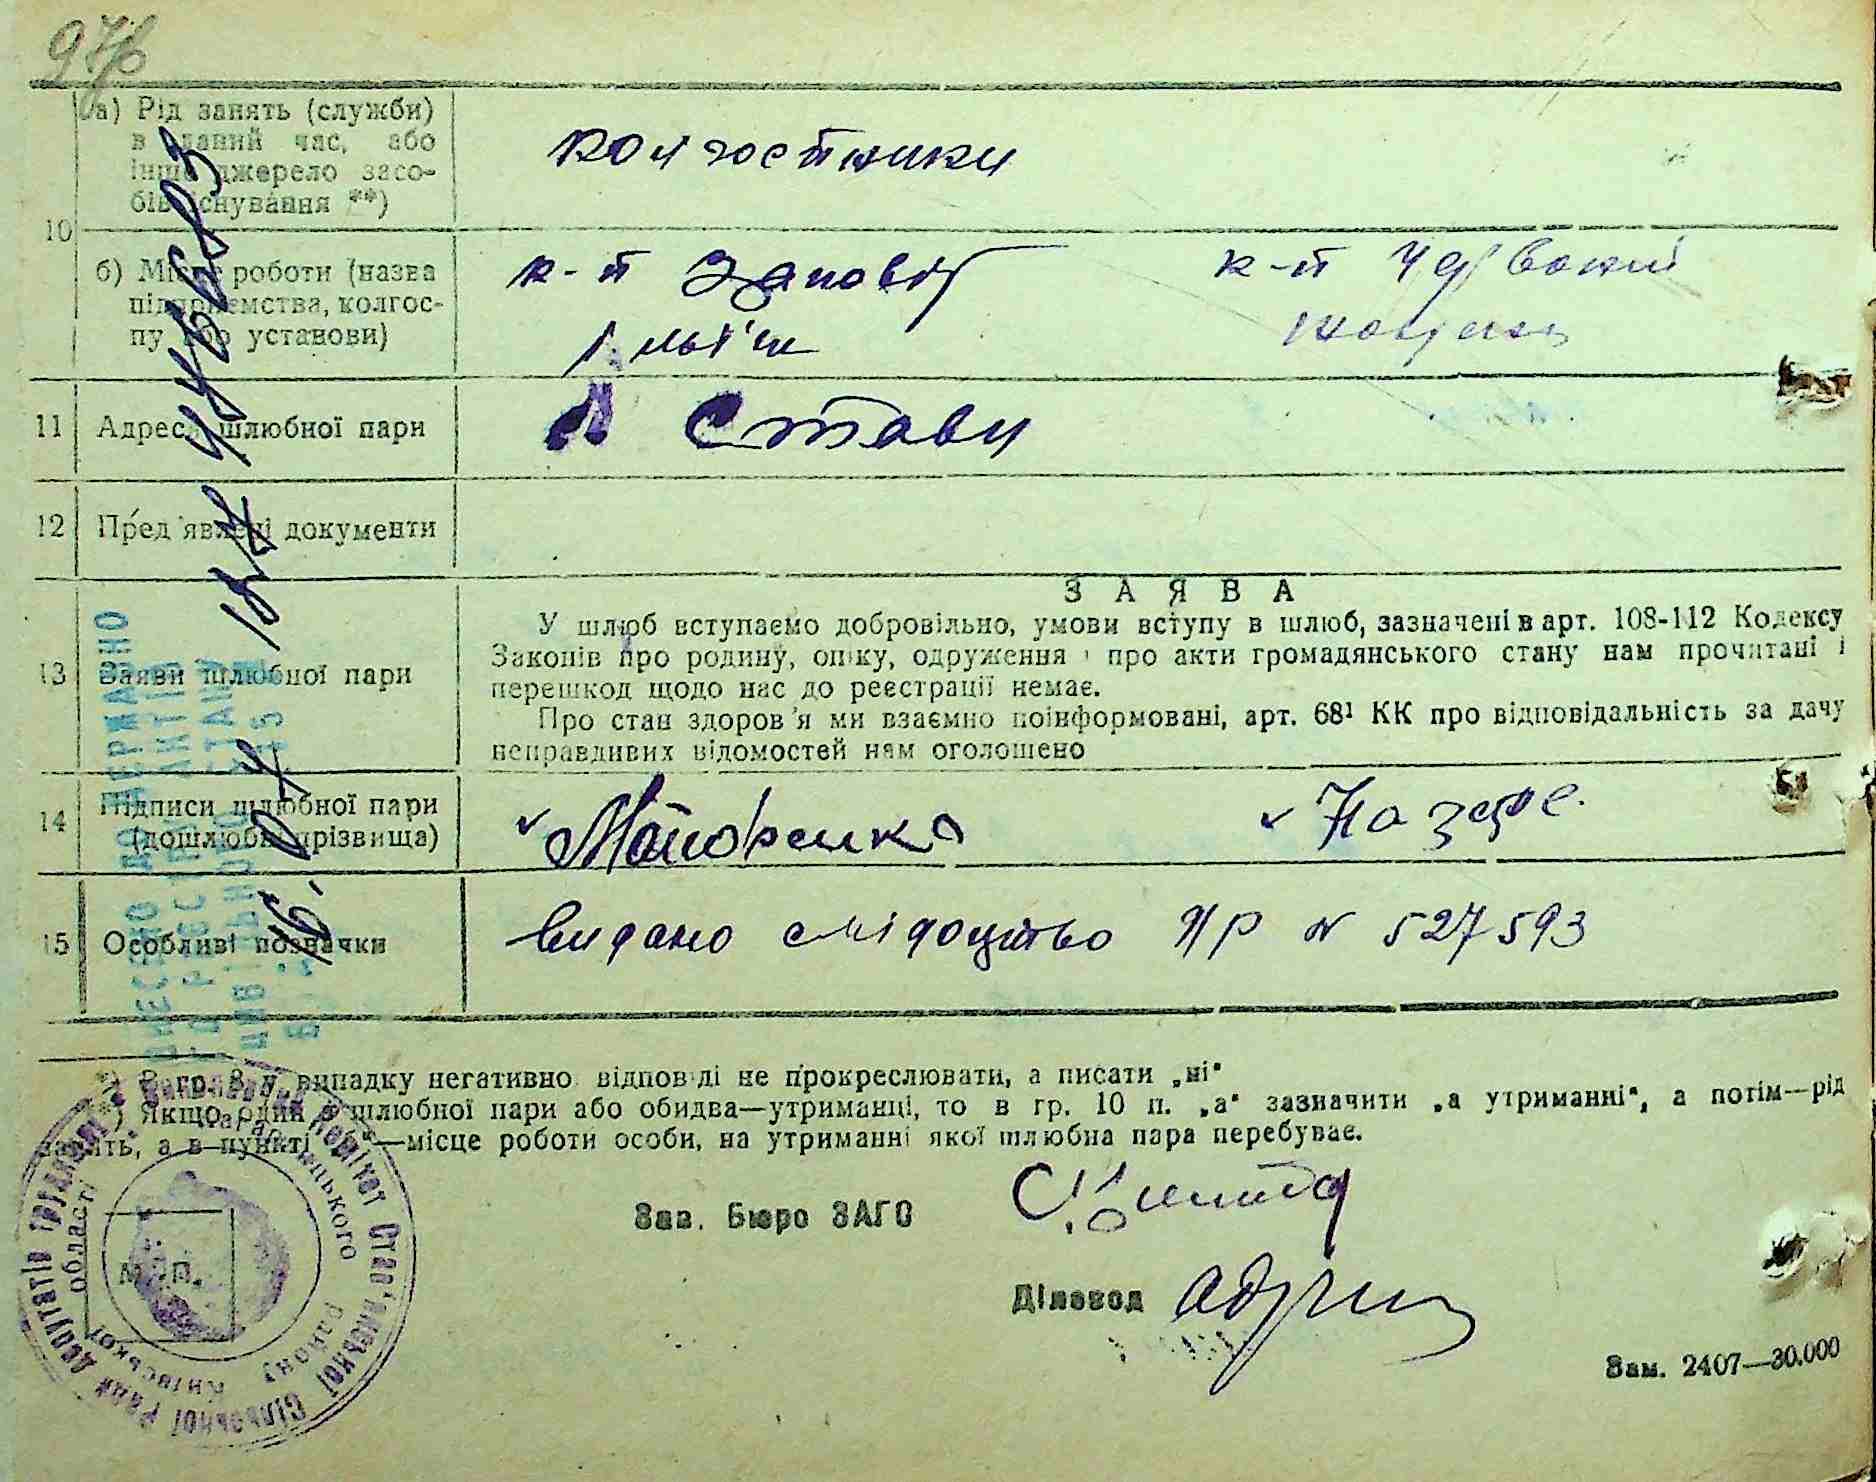 а) Рід занять (служби)
в даний час, або
інше джерело засо-
бів існування **)
колгостники
10
б) Місце роботи (назва
підприємства, колгос-
пу або установи)
к-п Заповіт
Ілліча
к-п Червоний
11 Адреса шлюбної пари
с Стави
12 Пред'явлені документи
ЗАЯВА
13 Заяви шлюбної пари
У шлюб вступаємо добровільно, умови вступу в шлюб, зазначені в арт. 108-112 Кодексу
Законів про родину, опіку, одруження і про акти громадянського стану нам прочитані і
перешкод щодо нас до реєстрації немає.
Про стан здоров'я ми взаємно поінформовані, арт. 68¹ КК про відповідальність за дачу
неправдивих відомостей нам оголошено
14 Підписи шлюбної пари
(дошлюбні прізвища)
15 Особливі позначки
видано свідоцтво ЯР № 527593
*) В гр. 8 у випадку негативно відповіді не прокреслювати, а писати „ні"
**) Якщо один з шлюбної пари або обидва—утриманці, то в гр. 10 п. „а" зазначити „а утриманні", а потім—рід
занять, а в пункті —місце роботи особи, на утриманні якої шлюбна пара перебуває.
Зав. Бюро ЗАГС
Діловод
М.П.
Зам. 2407—30.000